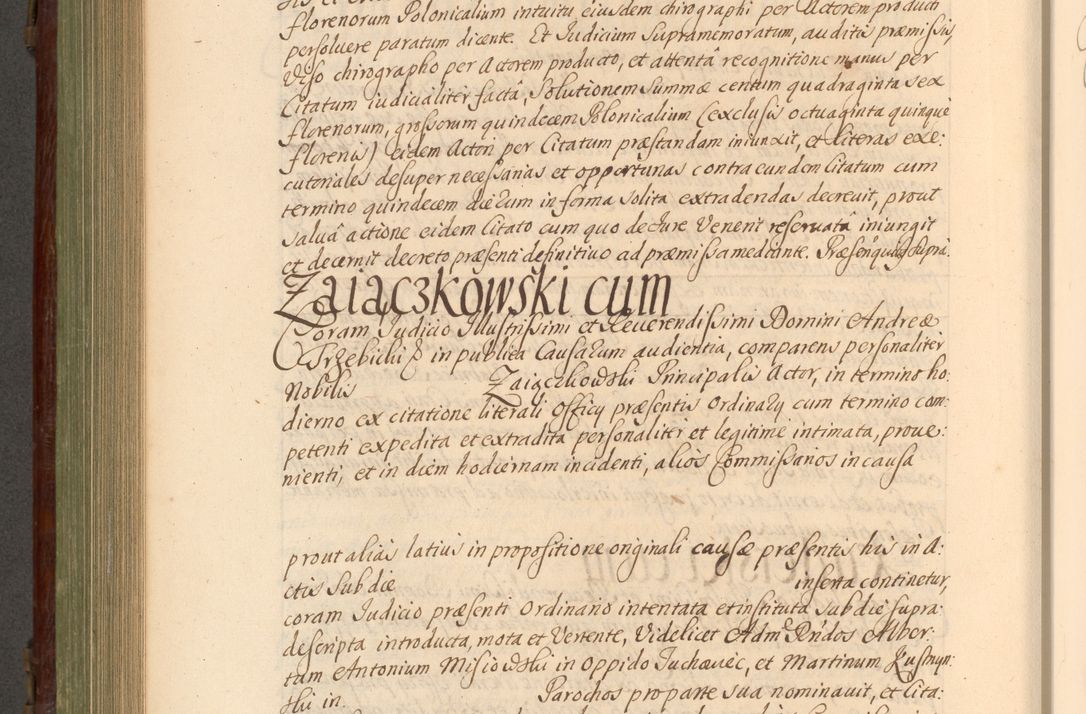 florenorum Polonicalium intuitu eiusdem chirographi per Actorem producti
persoluere paratum dicente. Et Iudicium supramemoratum, auditis præmissis,
viso chirographo per Actorem producto, et attentâ recognitione manus per
Citatum iudicialiter factâ, solutionem summæ centum quadraginta sex
florenorum, grossorum quindecem Polonicalium (exclusis octuaginta quinque
florenis) eidem Actori per Citatum præstandam iniunxit, et literas exe:
cutoriales desuper necessarias et opportunas contra eundem Citatum cum
termino quindecem dierum in forma solita extradendas decreuit, prout
salvâ actione eidem Citato cum quo de iure Venerit reseruatâ iniungit
et decernit decreto præsenti definitiuo ad præmissa mediante. Præsen:
Zaiączkowski cum
Coram Iudicio Illustrissimi et Reuerendissimi Domini Andreæ
Trzebicki in publica Causarum audientia, comparens personaliter
Nobilis Zaiączkowski Principalis Actor, in termino ho:
dierno ex citatione literali Officy præsentis Ordinary cum termino com:
petenti expedita et extradita personaliter et legitime intimata, proue:
nienti, et in diem hodiernam incidenti, alios Commissarios in causa
prout alias latius in propositione originali causæ præsentis his in A:
ctis sub die inserta continetur,
coram Iudicio præsenti Ordinario intentata et instituta sub die supra:
descripta introducta, mota et Vertente, Videlicet Adm. Rndos Alber:
tum Antonium Misiowski in Oppido Tuchauiec, et Martinum
ski in Parochos pro parte sua nominauit, et Cita: